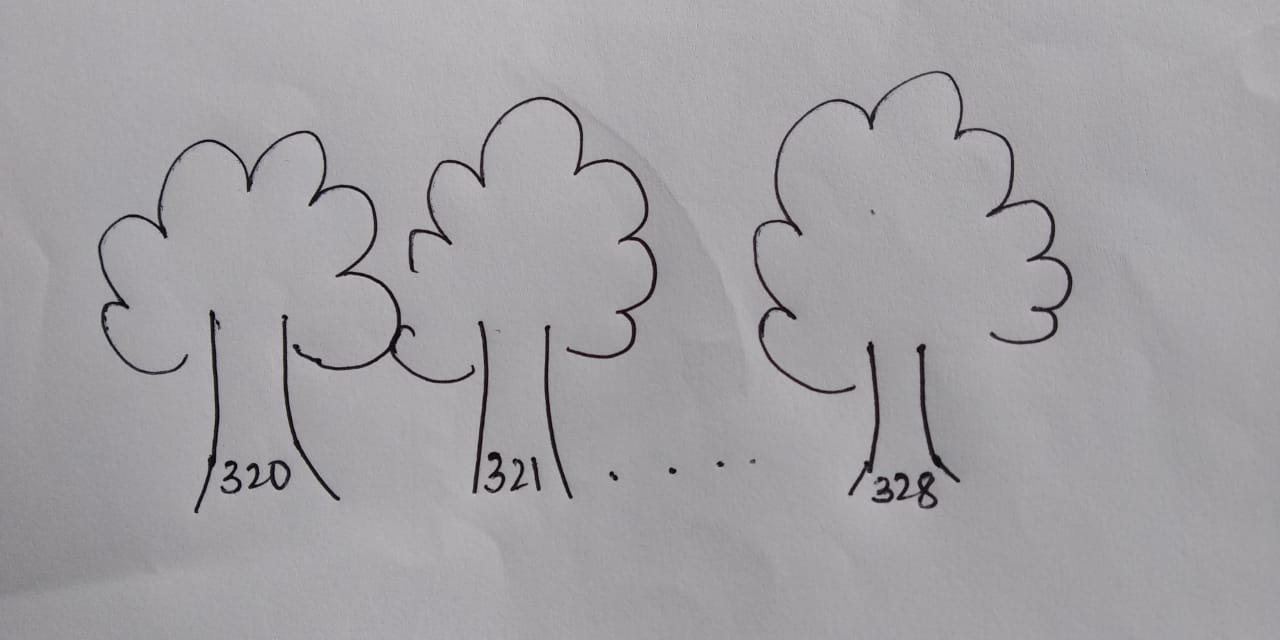 320 321 .... 328